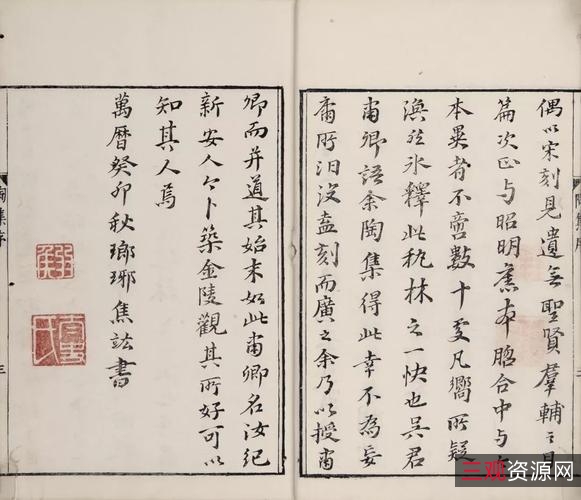 陶集序
偶以宋刻見遺無聖賢羣輔二目
篇次正與昭明舊本脗合中與今
本異者不啻數十處凡嚮所疑
渙然冰釋此秇林之一快也吳君
甫卿語余陶集得此幸不為妄
庸所汨没盍刻而廣之余乃以授甫
卿而并道其始末如此甫卿名汝紀
新安人今卜築金陵觀其所好可以
知其人焉
萬曆癸卯秋瑯琊焦竑書
陶集序
三
三观资源网